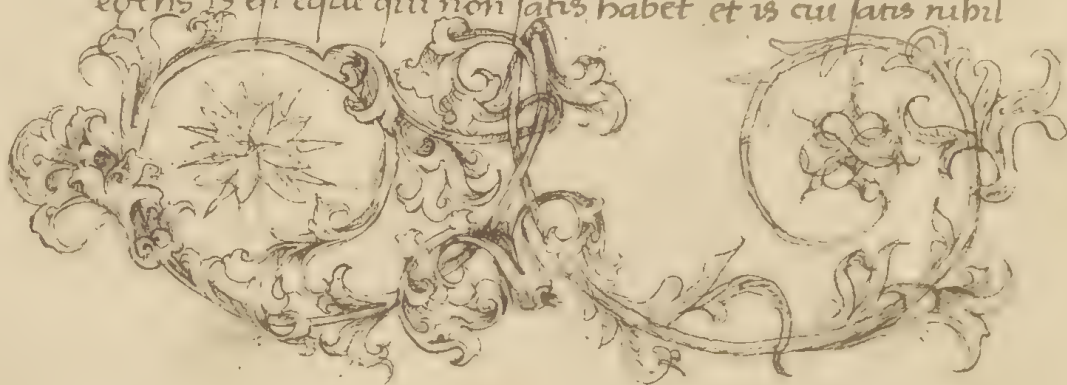 egens is est equi qui non satis habet et is cui satis nihil